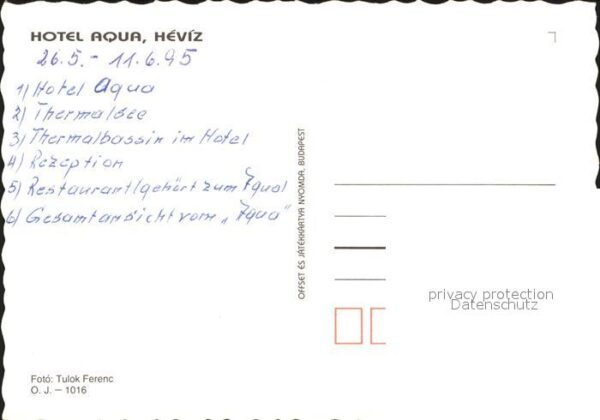 HOTEL AQUA, HÉVÍZ
26.5. - 11.6.95
1) Hotel Aqua
2) Thermalsee
3) Thermalbassin im Hotel
4) Rezeption
5) Restaurant (gehört zum Aqua)
6) Gesamtansicht vom „Aqua"
OFFSET ÉS JÁTÉKKÁRTYA NYOMDA, BUDAPEST
privacy protection
Datenschutz
Fotó: Tulok Ferenc
O. J. – 1016